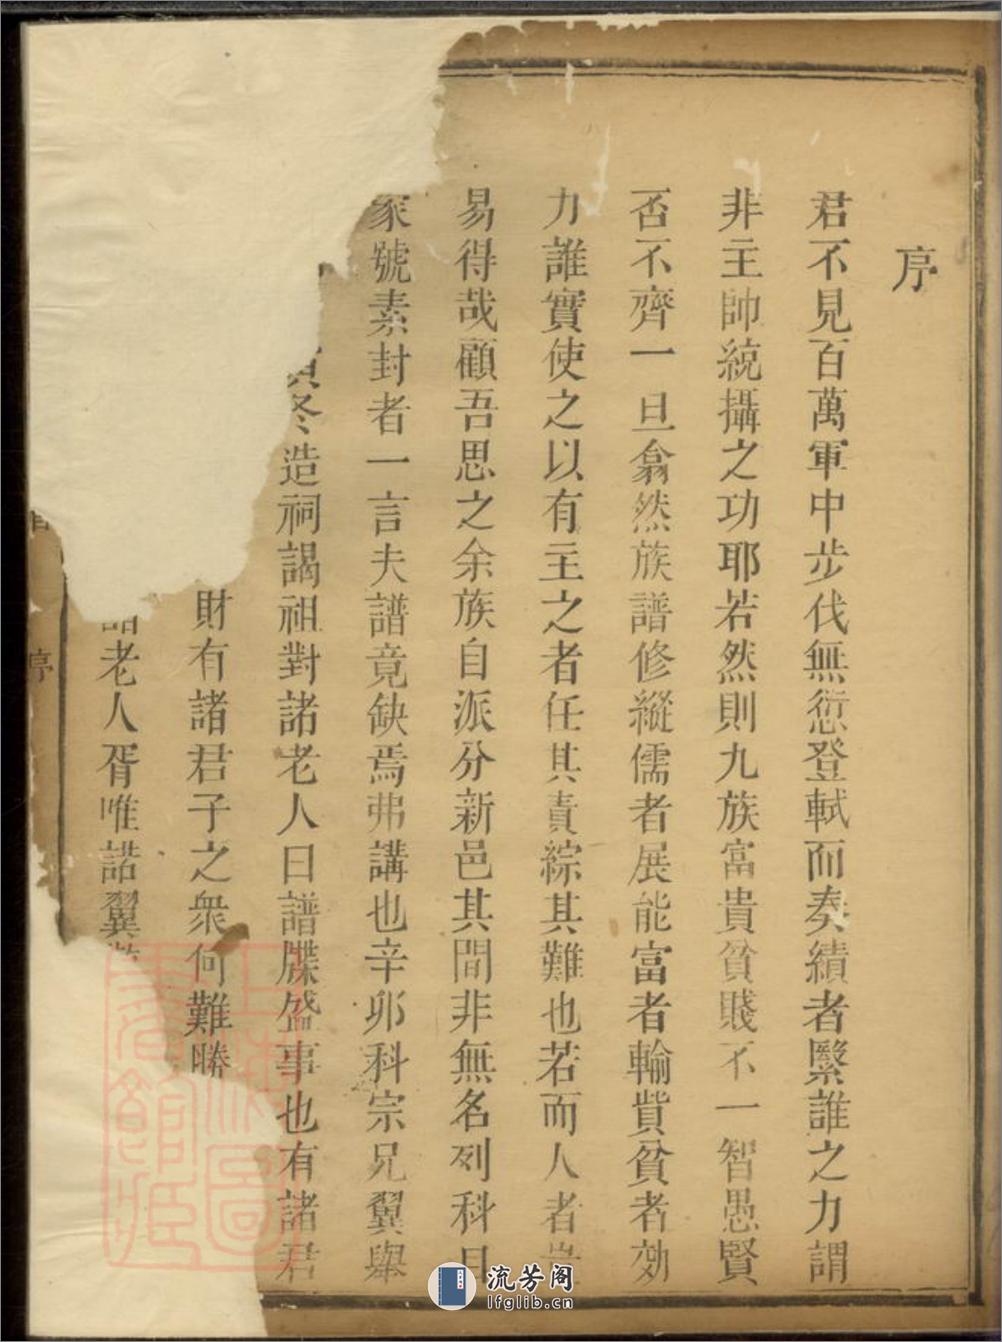 序
君不見百萬軍中步伐無愆登軾而奏績者繄誰之力謂
非主帥統攝之功耶若然則九族富貴貧賤不一智愚賢
否不齊一旦翕然族譜修縱儒者展能富者輸貲貧者効
力誰實使之以有主之者任其責綜其難也若而人者豈
易得哉顧吾思之余族自派分新邑其間非無名列科目
家號素封者一言夫譜竟缺焉弗講也辛卯科宗兄翼舉
冬造祠謁祖對諸老人曰譜牒盛事也有諸君
財有諸君子之衆何難勝
諸老人胥唯諾翼
序
上海圖書館藏
流芳阁
lfglib.cn